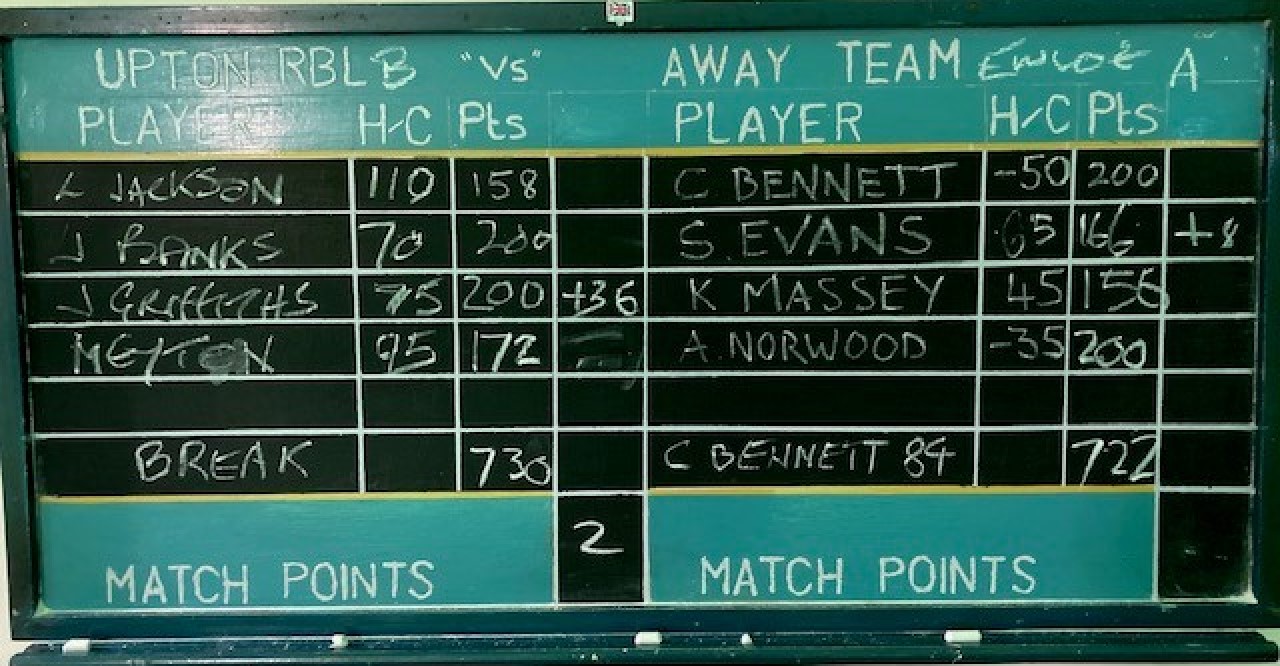 UPTON RBL B "VS" AWAY TEAM EWLOE A
PLAYER H/C Pts PLAYER H/C Pts
L JACKSON 110 158 C BENNETT -50 200
J BANKS 70 200 S. EVANS 65 166 +8
J GRIFFITHS 75 200 +36 K MASSEY 45 156
MEYTON 95 172 A. NORWOOD -35 200
BREAK 730 C BENNETT 84 722
2
MATCH POINTS MATCH POINTS